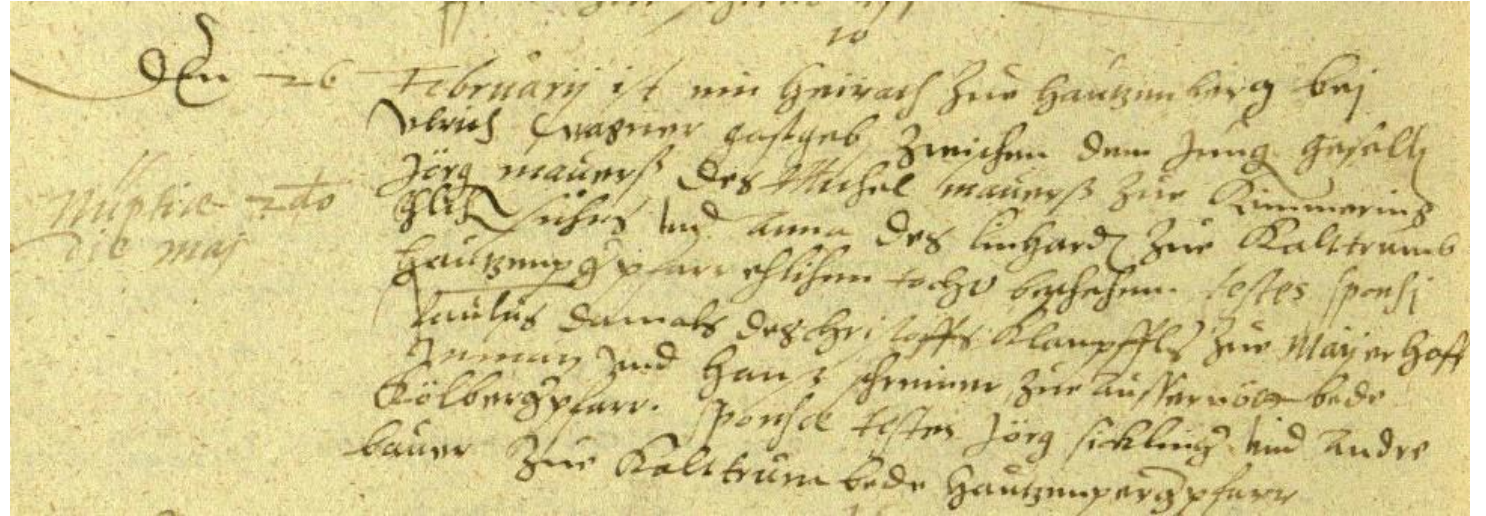 10
Den 26 February ist ein Heirath zue Hautzenberg bej
Ulrich Wagner gastgeb zwischen dem Jung geselln
Jörg maurerß des Michel maurerß zue Kimmering
Ehlich sohns und Anna des linhard zue Kalttrumb
Nuptiae 2do
die maj
Hautzenpergpfarr ehlichen tochter beschehen. testes sponsi
Paulus damals des Christoffs Klampffls zue Mayerhoff
Inman und Hanß schreiner zue Ausserwöeg bede
Kölbergpfarr. sponsae testes Jörg sickling und Andre
bauer zue Kalttrum bede Hautzenpergpfarr